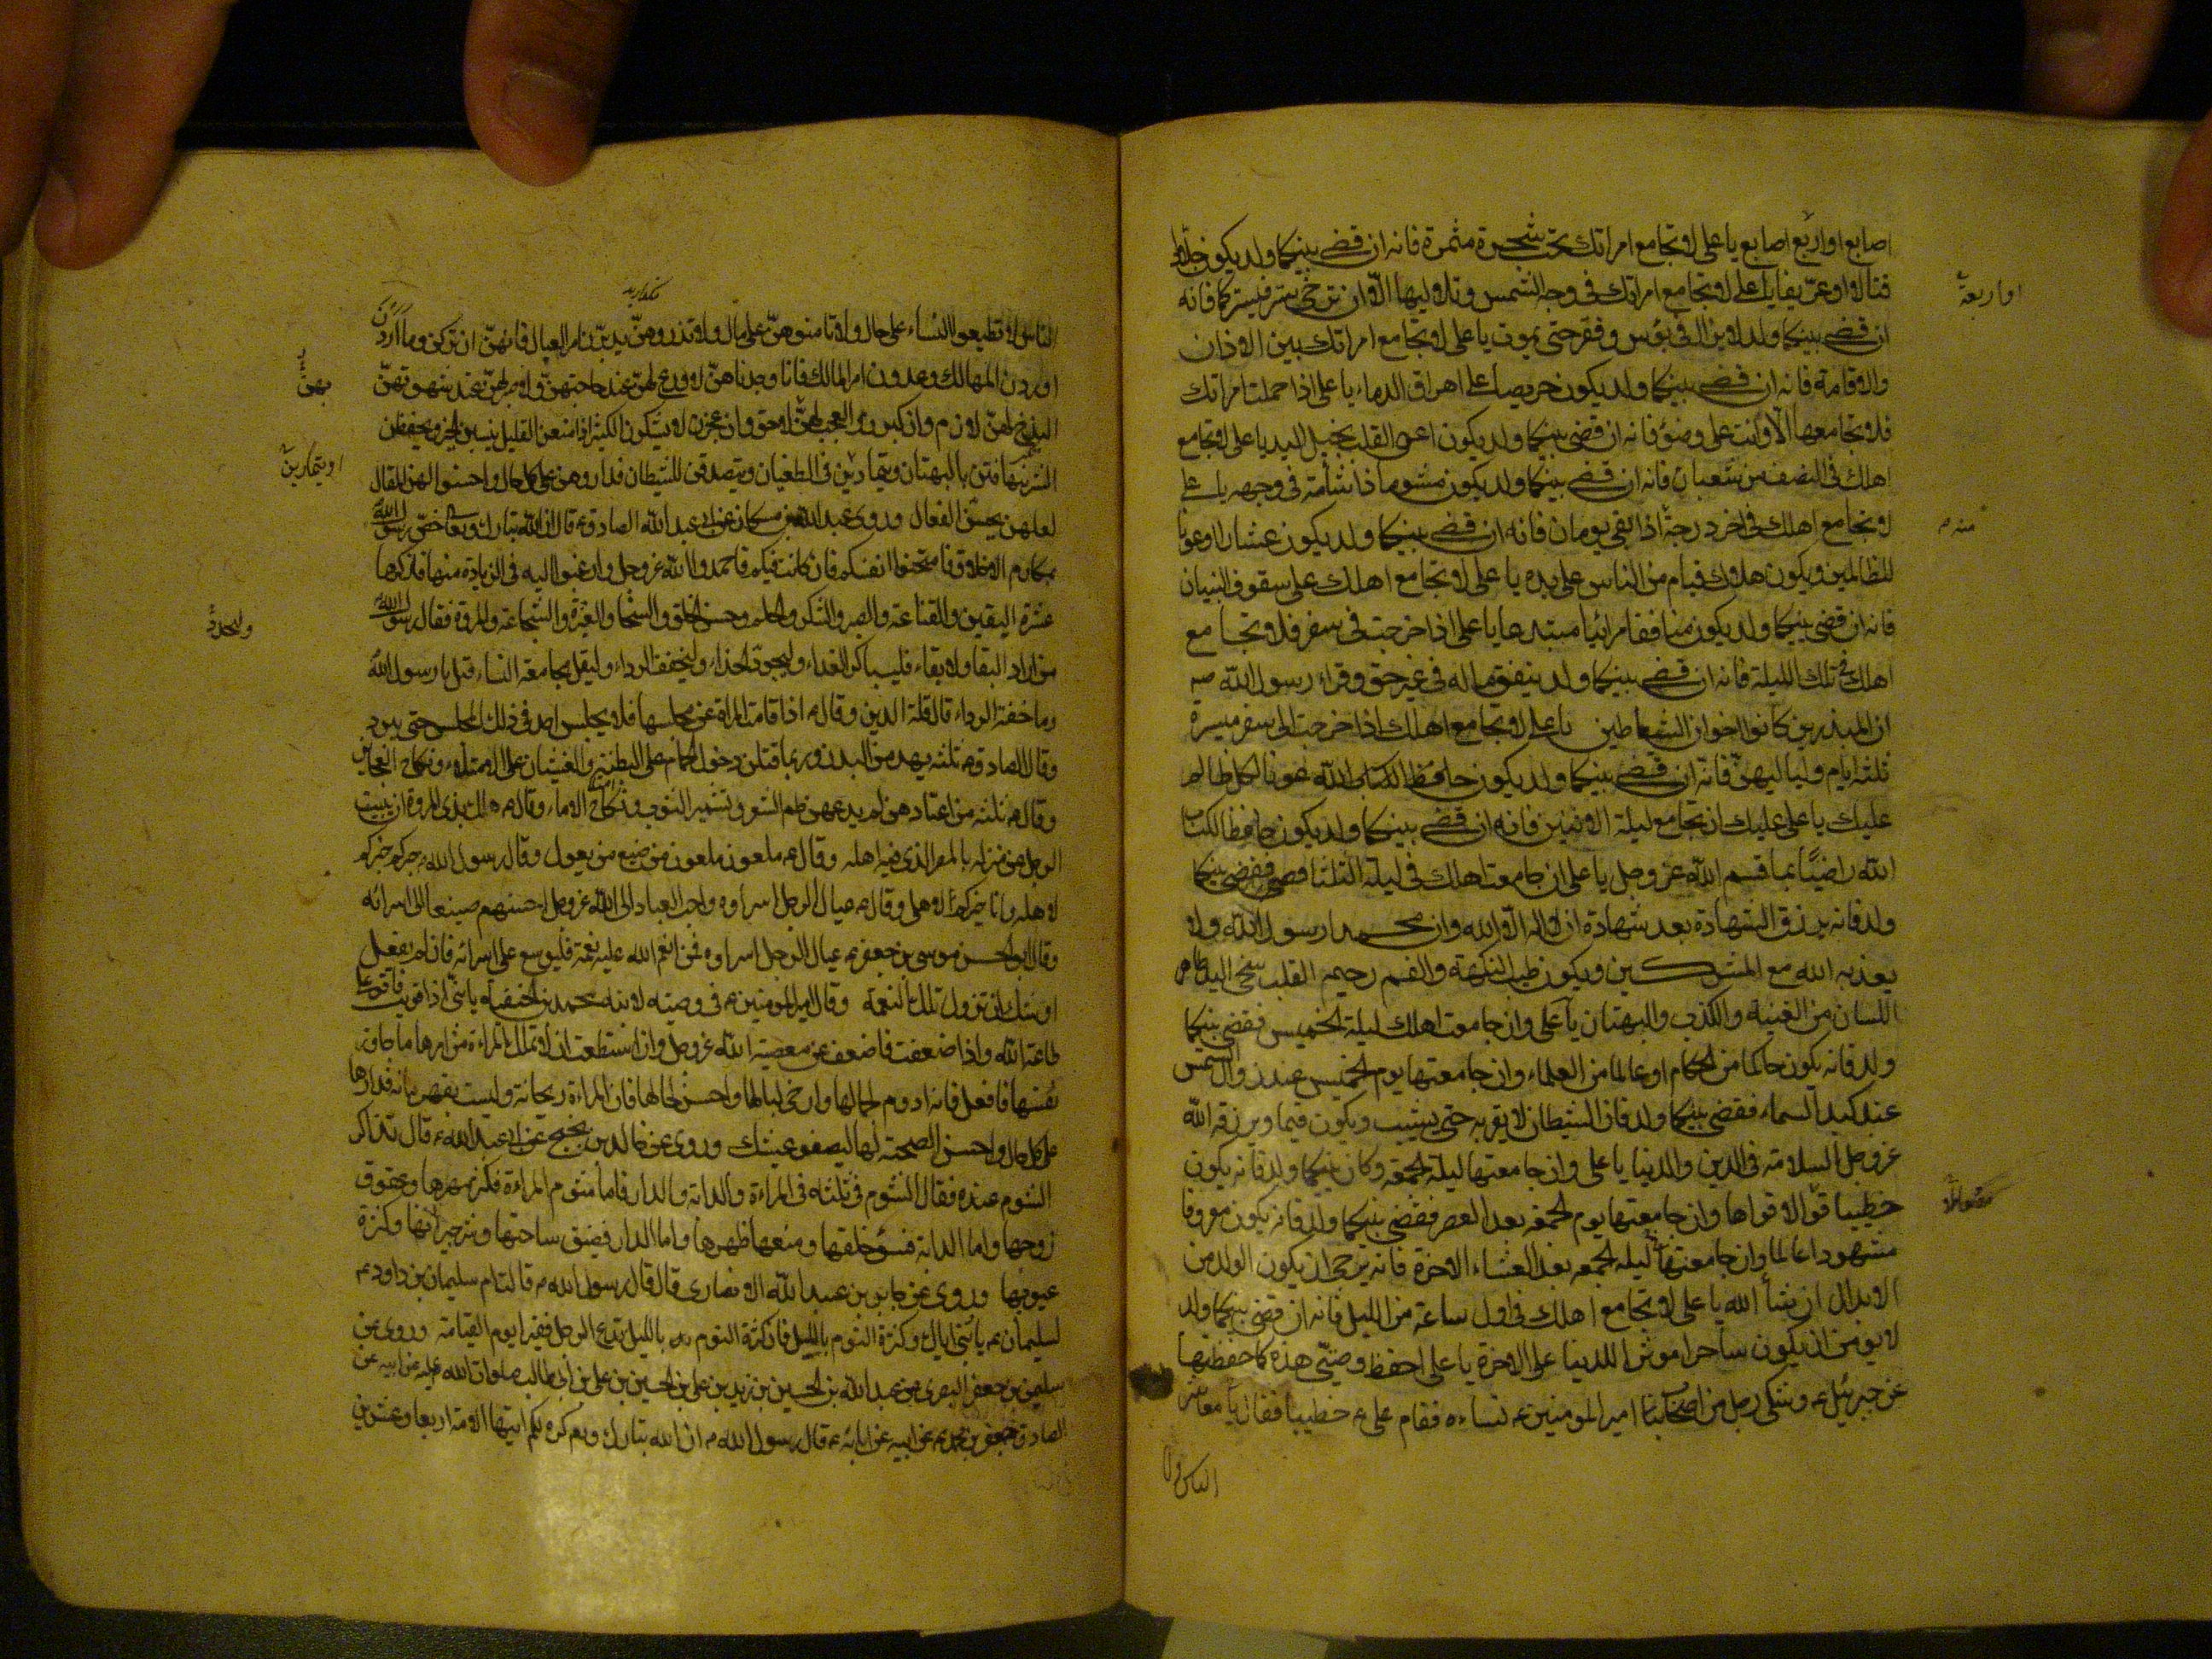 اصابع او اربع اصابع يا على لا تجامع امراتك تحت شجرة مثمرة فانه ان قضى بينكما ولد يكون جلادا
قتالا او عريفا يا على لا تجامع امراتك فى وجه الشمس وتلاليها الا ان ترخى ستر فيستركما فانه
ان قضى بينكما ولد لا يزال فى بؤس وفقر حتى يموت يا على لا تجامع امراتك بين الاذان
والاقامة فانه ان قضى بينكما ولد يكون حريصا على اهراق الدماء يا على اذا حملت امراتك
فلا تجامعها الا وانت على وضوء فانه ان قضى بينكما ولد يكون اعمى القلب بخيل اليد يا على لا تجامع
اهلك فى النصف من شعبان فانه ان قضى بينكما ولد يكون مشوما ذا شامة فى وجهه يا على
لا تجامع اهلك فى اخر درجة اذا بقى يومان فانه ان قضى بينكما ولد يكون عشارا او عونا
للظالمين ويكون هلاك فيام من الناس على يده يا على لا تجامع اهلك على سقوف البنيان
فانه ان قضى بينكما ولد يكون منافقا مرائيا مبتدعا يا على اذا خرجت فى سفر فلا تجامع
اهلك فى تلك الليلة فانه ان قضى بينكما ولد ينفق ماله فى غير حق وقراء رسول الله ص
ان المبذرين كانوا اخوان الشياطين يا على لا تجامع اهلك اذا خرجت الى سفر مسيرة
ثلثه ايام ولياليهن فانه ان قضى بينكما ولد يكون عونا لكل ظالم
عليك يا على عليك ان تجامع ليلة الاثنين فانه ان قضى بينكما ولد يكون حافظا لكتاب
الله راضيا بما قسم الله عز وجل يا على ان جامعت اهلك فى ليلة الثلثا فقضى بينكما
ولد فانه يرزق الشهادة بعد شهادة ان لا اله الا الله وان محمدا رسول الله ولا
يعذبه الله مع المشركين ويكون طيب النكهة والفم رحيم القلب سخى اليد طاهر
اللسان من الغيبة والكذب والبهتان يا على وان جامعت اهلك ليلة الخميس فقضى بينكما
ولد فانه يكون حاكما من الحكام او عالما من العلماء وان جامعتها يوم الخميس عند زوال الشمس
عند كبد السماء فقضى بينكما ولد فان الشيطان لا يقربه حتى يشيب ويكون قيما ويرزقه الله
عز وجل السلامة فى الدين والدنيا يا على وان جامعتها ليلة الجمعه وكان بينكما ولد فانه يكون
خطيبا قوالا مفوها وان جامعتها يوم الجمعه بعد العصر فقضى بينكما ولد فانه يكون معروفا
مشهورا عالما وان جامعتها ليله الجمعه بعد العشاء الاخرة فانه يرجى ان يكون الولد من
الابدال ان شأ الله يا على لا تجامع اهلك فى اول ساعة من الليل فانه ان قضى بينكما ولد
لا يومن ان يكون ساحرا موثرا للدنيا على الاخرة يا على احفظ وصيتى هذه كما حفظتها
عن جبرئيل ع وشكى رجل من اصحاب امير المومنين ع نساءه فقام على ع خطيبا فقال يا معاشر
الناس لا
او اربعة
الناس لا تطيعوا النساء على حال ولا تامنوهن على مال ولا تذروهن يدبرن امر العيال فانهن ان تركن وما اردن
اوردن المهالك وعدون امر المالك فانا وجدناهن لا ورع لهن عند حاجتهن ولا صبر لهن عند شهوتهن
البذخ لهن لازم وان كبرن والعجب لهن لاحق وان عجزن لا يشكرن الكثير اذا منعن القليل ينسين الخير ويحفظن
الشر يتهافتن بالبهتان ويتمادين فى الطغيان ويتصدقن للشيطان فداروهن على كل حال واحسنوا لهن المقال
لعلهن يحسن الفعال وروى عبد الله بن مسكان عن ابى عبد الله الصادق ع قال ان الله تبارك وتعالى خص رسول الله
بمكارم الاخلاق فامتحنوا انفسكم فان كانت فيكم فاحمدوا الله عز وجل وارغبوا اليه فى الزيادة منها فذكرها
عشرة اليقين والقناعة والصبر والشكر والحلم وحسن الخلق والسخا والغيرة والشجاعة والمروة فقال رسول الله
من اراد البقا ولا بقاء فليباكر الغداء وليجود الحذاء وليخفف الرداء وليقل مجامعة النساء قيل يا رسول الله
وما خفة الرداء قال قلة الدين وقال ع اذا قامت المراة عن مجلسها فلا يجلس احد فى ذلك المجلس حتى يبرد
وقال الصادق ع ثلثه يهدمن البدن وربما قتلن دخول الحمام على البطنة والغشيان على الامتلاء ونكاح العجايز
وقال ع ثلثه من اعتادهن لم يدعهن طم الشعر وتشمير الثوب ونكاح الاماء وقال ع هلك بذى المروة ان يبيت
الرجل عن منزله بالمصر الذى فيه اهله وقال ع ملعون ملعون من ضيع من يعول وقال رسول الله ص خيركم خيركم
لاهله وانا خيركم لاهلى وقال ع عيال الرجل اسراوه واحب العباد الى الله عز وجل احسنهم صنيعا الى اسرائه
وقال ابو الحسن موسى بن جعفر ع عيال الرجل اسراوه فمن انعم الله عليه نعمة فليوسع على اسرائه فان لم يفعل
اوشك ان تزول تلك النعمة وقال امير المومنين ع فى وصيته لابنه محمد بن الحنفية يا بنى اذا قويت فاقو على
طاعة الله واذا ضعفت فاضعف عن معصية الله عز وجل وان استطعت ان لا تملك المراة من امرها ما جاوز
نفسها فافعل فانه ادوم لجمالها وارخى لبالها واحسن لحالها فان المراءة ريحانة وليست بقهرمانة فدارها
على كل حال واحسن الصحبة لها ليصفو عيشك وروى عن خالد بن نجيح عن ابى عبد الله ع قال تذاكر
الشوم عنده فقال الشوم فى ثلثه فى المراءة والدابة والدار فاما شوم المراءة فكثرة مهرها وعقوق
زوجها واما الدابة فسوء خلقها ومنعها ظهرها واما الدار فضيق ساحتها وشر جيرانها وكثرة
عيوبها وروى عن جابر بن عبد الله الانصارى قال قال رسول الله ص قالت ام سليمان بن داود ع
لسليمان ع يا بنى اياك وكثرة النوم بالليل فان كثرة النوم بالليل تدع الرجل فقيرا يوم القيامة وروى عن
سليمن بن جعفر البصرى عن عبد الله بن الحسين بن زيد بن على بن الحسين بن على بن ابى طالب صلوات الله عليه عن ابيه عن
الصادق جعفر بن محمد ع عن ابيه عن ابائه ع قال رسول الله ص ان الله تبارك وتع كره لكم ايتها الامة اربعا وعشرين
او يتمادين